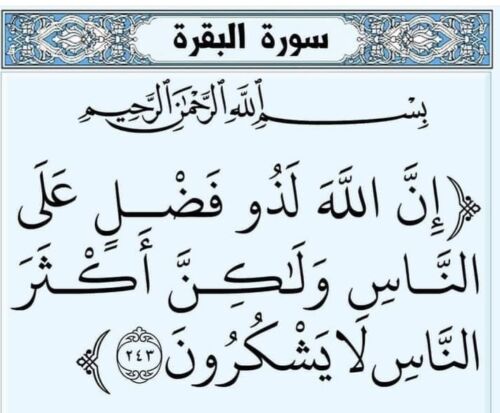 سورة البقرة
بِسْمِ اللَّهِ الرَّحْمَٰنِ الرَّحِيمِ
﴿إِنَّ اللَّهَ لَذُو فَضْلٍ عَلَى
النَّاسِ وَلَٰكِنَّ أَكْثَرَ
النَّاسِ لَا يَشْكُرُونَ ٢٤٣﴾